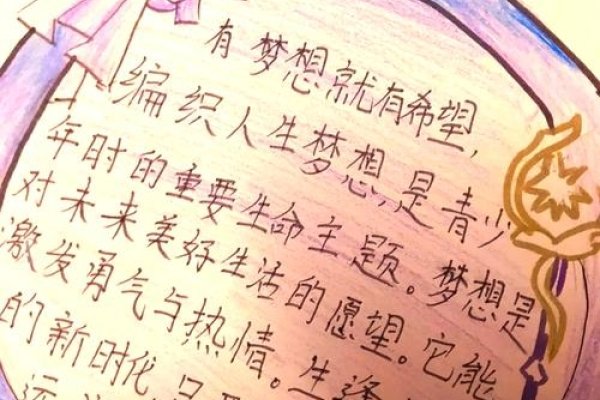 有梦想就有希望,
编织人生梦想,是青少
年时的重要生命主题。梦想是
对未来美好生活的愿望。它能
激发勇气与热情。生逢
的新时代,只